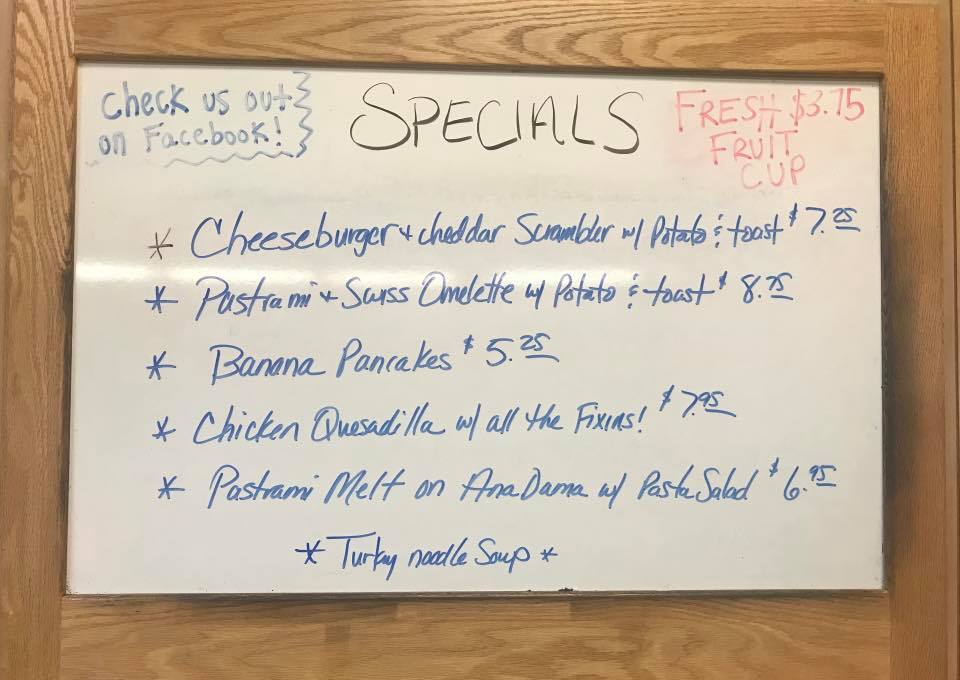 Check us out
on Facebook!
SPECIALS
FRESH $3.75
FRUIT
CUP
* Cheeseburger + cheddar Scrambler w/ Potato & toast $7.25
* Pastrami + Swiss Omelette w/ Potato & toast $8.75
* Banana Pancakes $5.25
* Chicken Quesadilla w/ all the Fixins! $7.95
* Pastrami Melt on AnaDama w/ Pasta Salad $6.95
* Turkey noodle Soup *